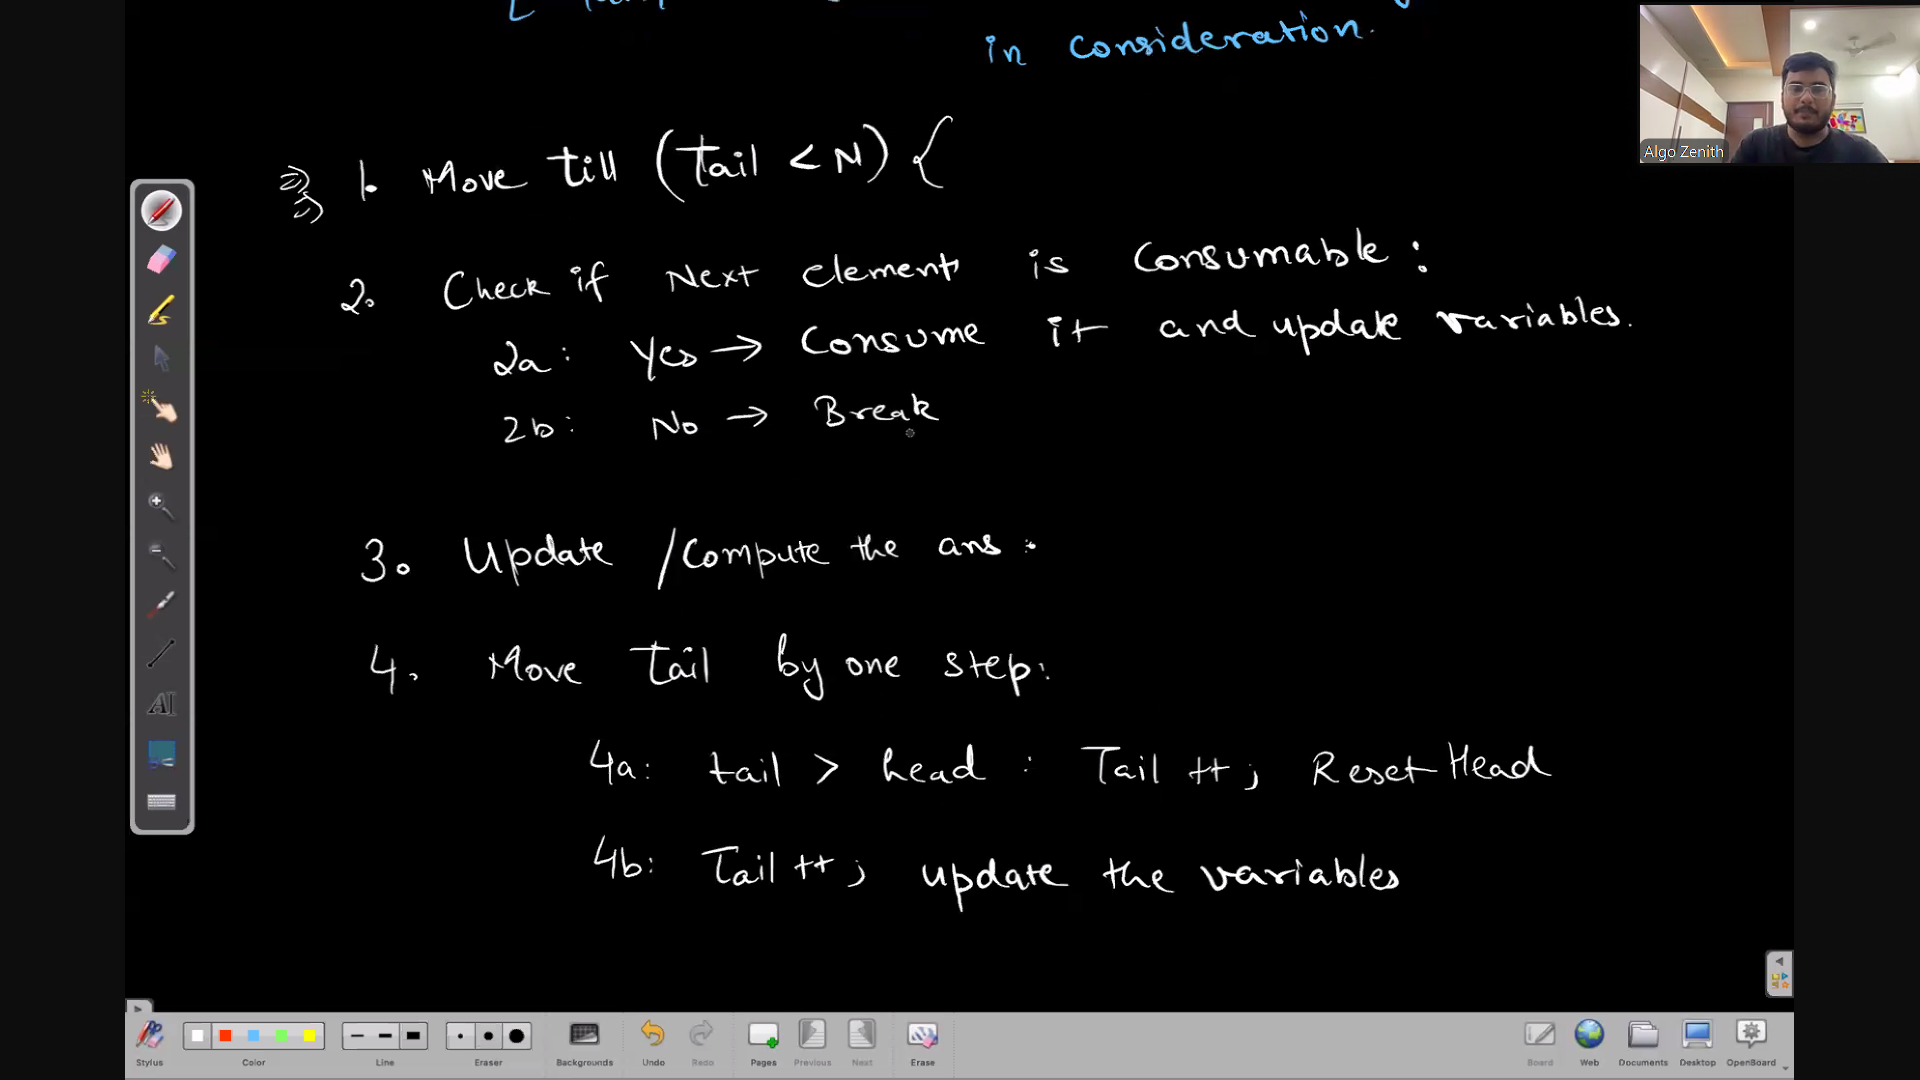 in consideration.
Algo Zenith
1. Move till (Tail < N) {
2. Check if Next element is Consumable :
2a : Yes → Consume it and update variables.
2b : No → Break
3. Update / Compute the ans :
4. Move Tail by one step :
4a : tail > head : Tail ++ ; Reset Head
4b : Tail ++ ; update the variables
Stylus
Color
Line
Eraser
Backgrounds
Undo
Redo
Pages
Previous
Next
Erase
Board
Web
Documents
Desktop
OpenBoard